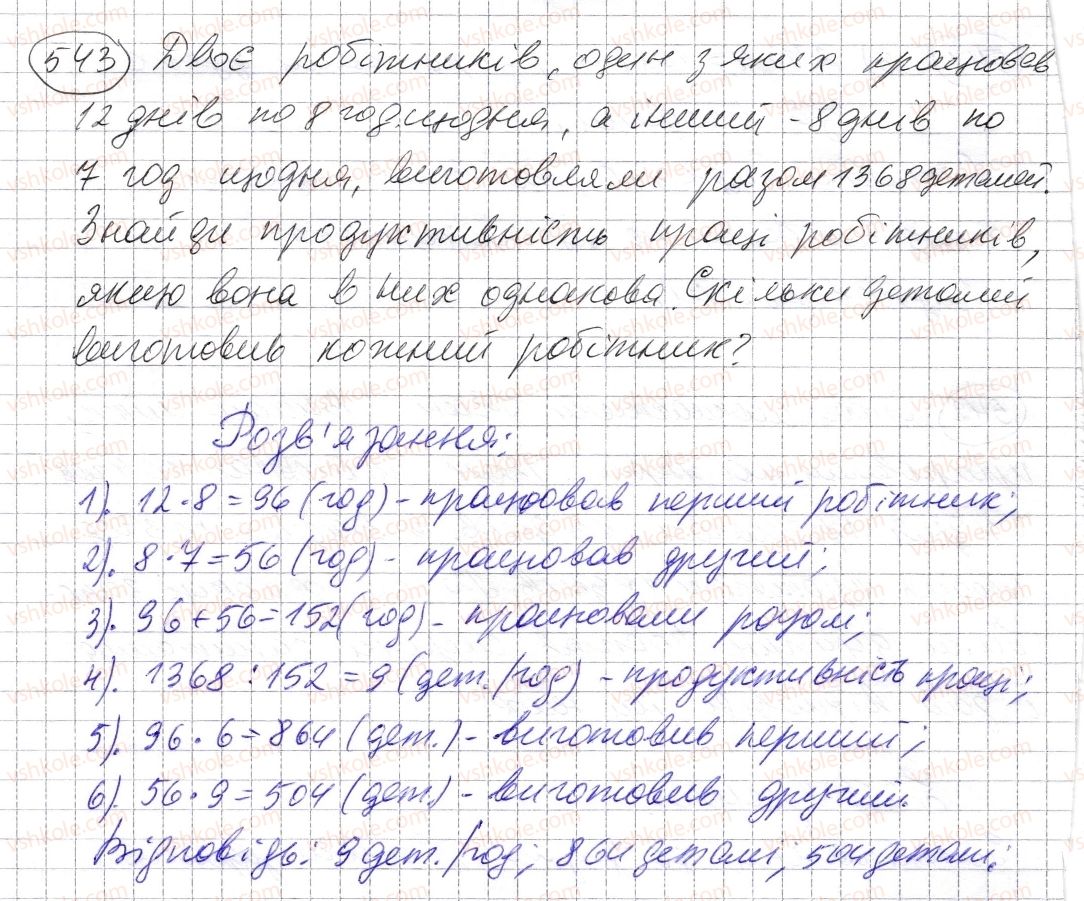 543 Двоє робітників, один з яких працював
12 днів по 8 год щодня, а інший - 8 днів по
7 год щодня, виготовляли разом 1368 деталей.
Знайди продуктивність праці робітників,
якщо вона в них однакова. Скільки деталей
виготовив кожний робітник?
Розв'язання:
1). 12 · 8 = 96 (год) - працював перший робітник;
2). 8 · 7 = 56 (год) - працював другий;
3). 96 + 56 = 152 (год) - працювали разом;
4). 1368 : 152 = 9 (дет./год) - продуктивність праці;
5). 96 · 6 = 864 (дет.) - виготовив перший;
6). 56 · 9 = 504 (дет.) - виготовив другий.
Відповідь: 9 дет./год; 864 деталі; 504 деталі.